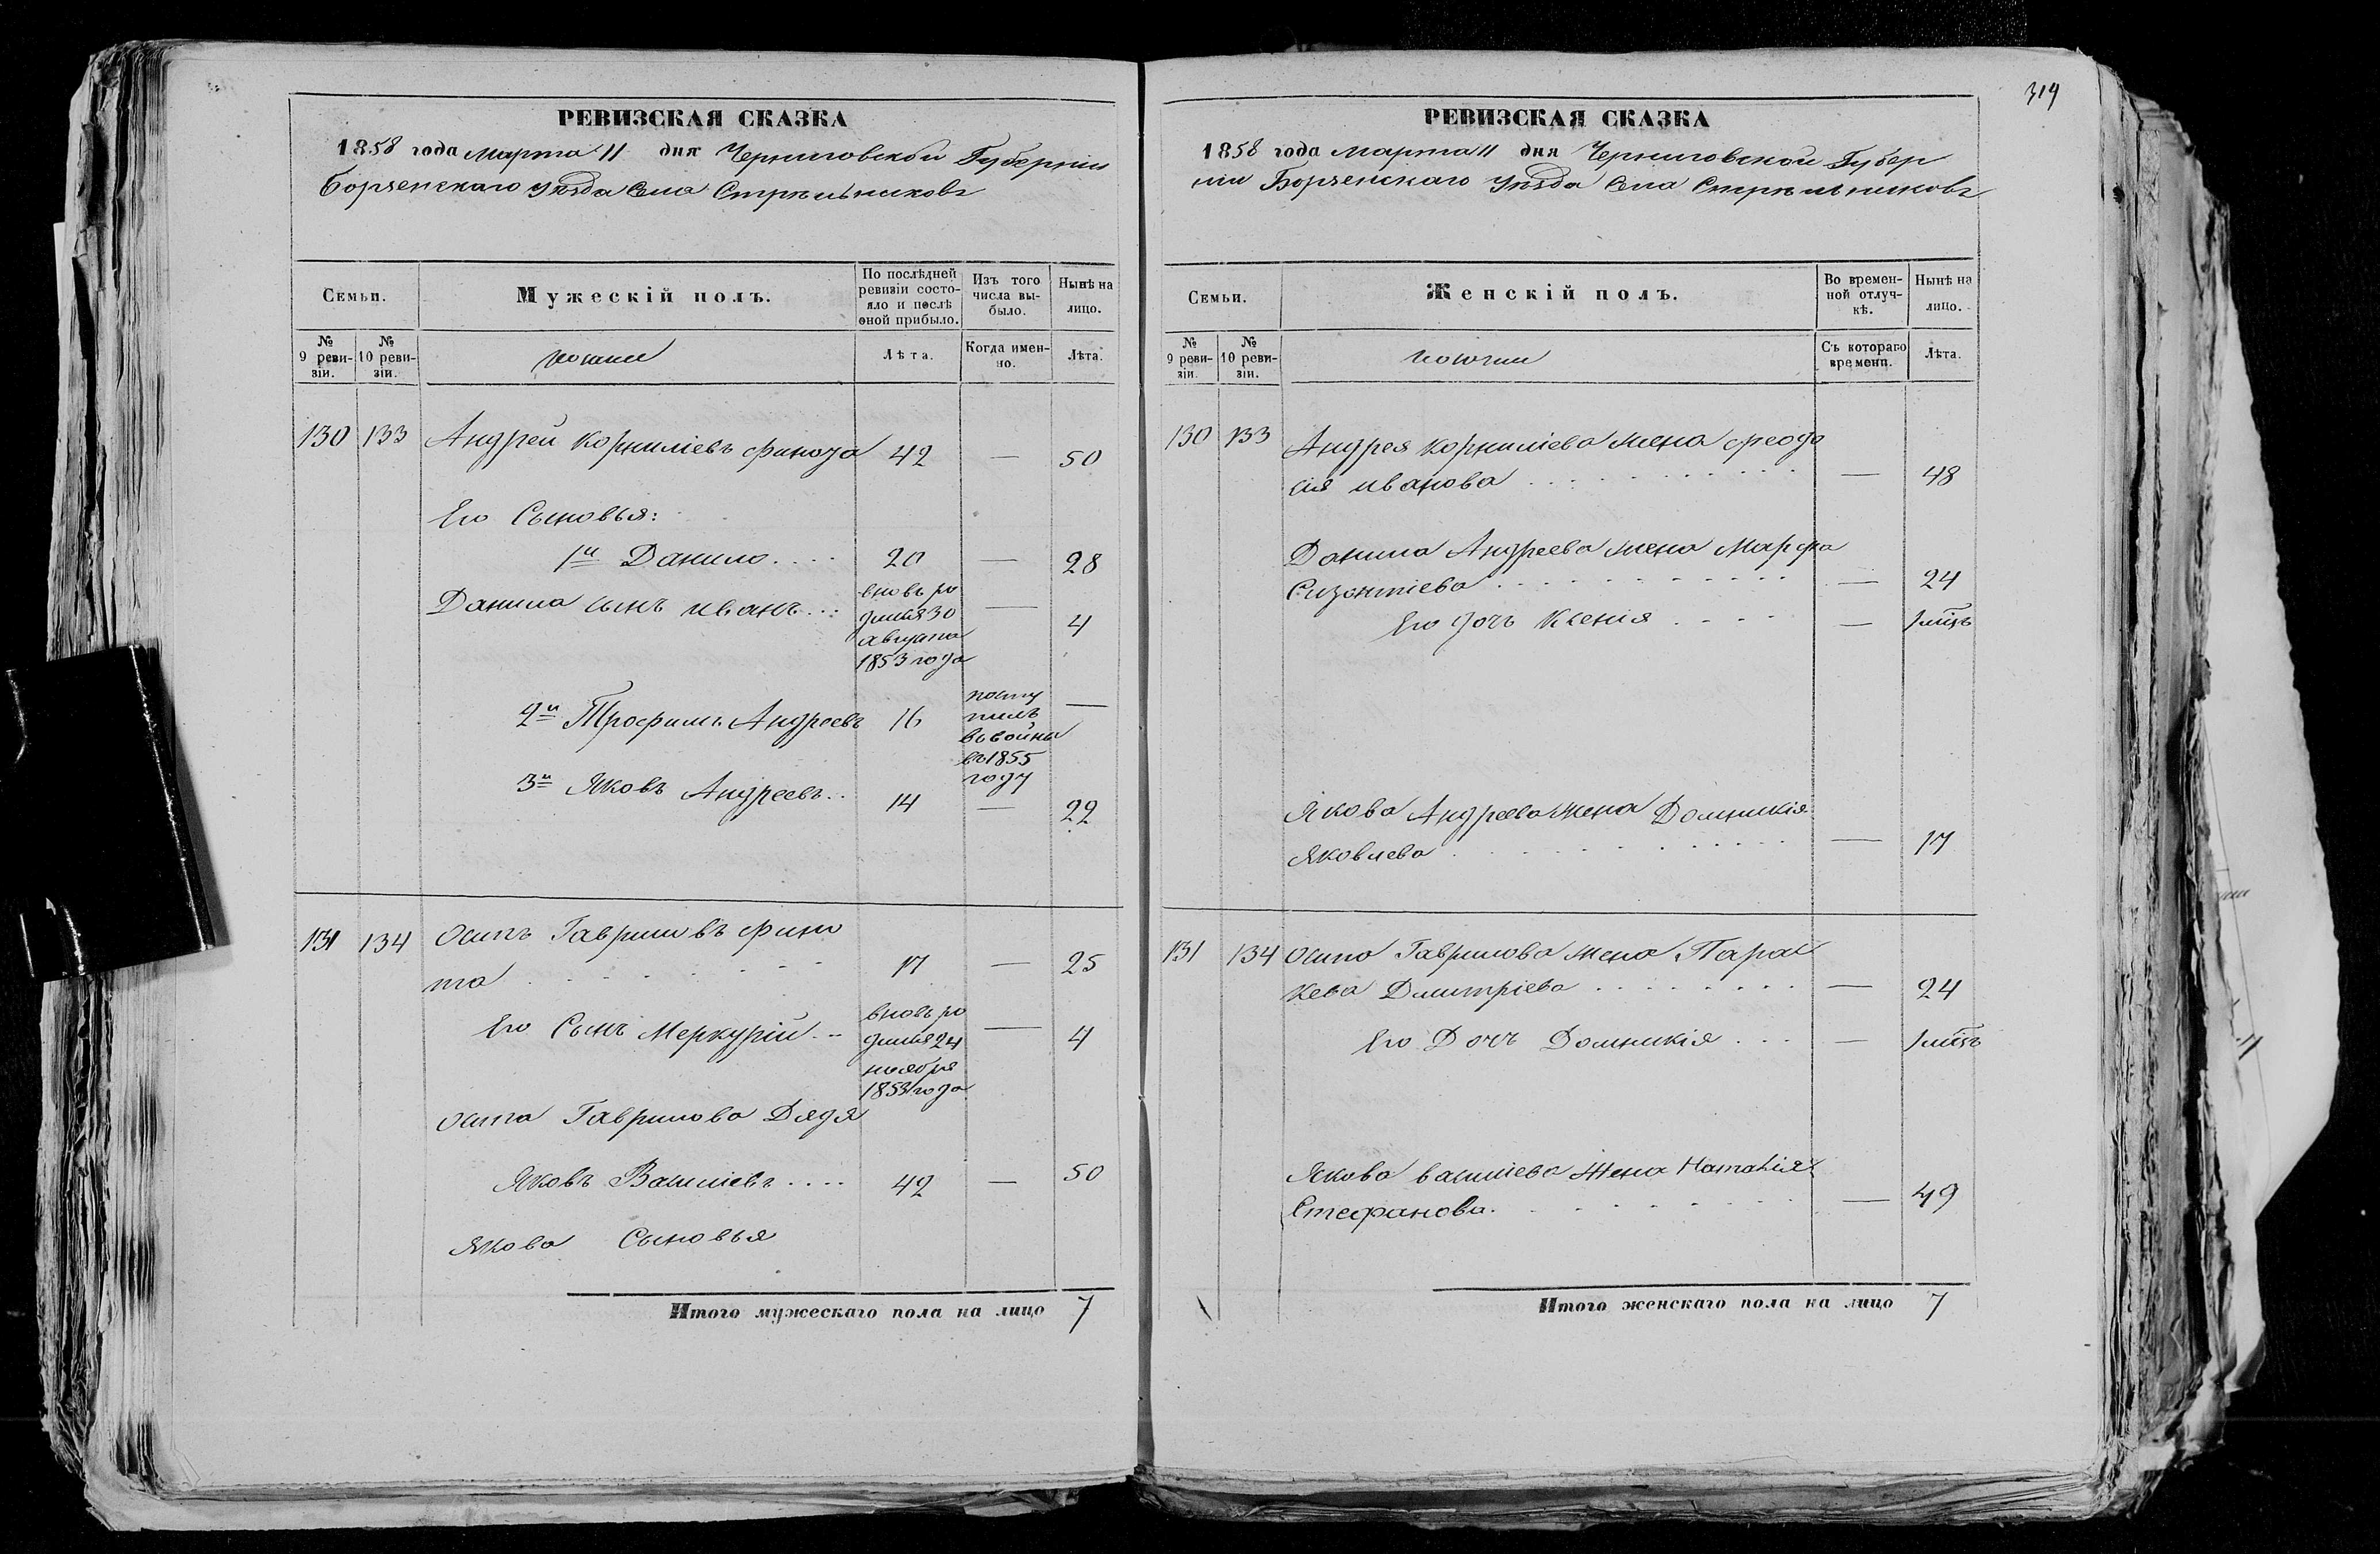 РЕВИЗСКАЯ СКАЗКА
1858 года марта 11 дня Черниговской Губерніи
Борзенскаго уѣзда села Стрѣльниковъ
Семьи.
Мужескій полъ.
По послѣдней ревизіи состояло и послѣ оной прибыло.
Изъ того числа выбыло.
Нынѣ на лицо.
№ 9 ревизіи.
№ 10 ревизіи.
Лѣта.
Когда именно.
Лѣта.
130 133 Андрей Корниліевъ 42 — 50
Его Сыновья:
1й Данило.... 20 — 28
Данила сынъ иванъ... вновь ро
дился 30 — 4
августа
1853 года
2й Трофимъ Андреевъ 16 посту —
пилъ
въ 1855
году
3й Яковъ Андреевъ.. 14 — 22
131 134 Осипъ Гавриловъ фино
та 17 — 25
Его Сынъ Меркурій.. вновь ро
дился 24 — 4
ноября
1853 года
Осипа Гаврилова Дядя
Яковъ Василіевъ.... 42 — 50
Якова Сыновья
Итого мужескаго пола на лицо 7
319
РЕВИЗСКАЯ СКАЗКА
1858 года марта 11 дня Черниговской Губер
ніи Борзенскаго уѣзда села Стрѣльниковъ
Семьи.
Женскій полъ.
Во временной отлучкѣ.
Нынѣ на лицо.
№ 9 ревизіи.
№ 10 ревизіи.
Съ котораго времени.
Лѣта.
130 133 Андрея Корниліева жена феодо
сія иванова — 48
Данила Андреева жена Марфа
— 24
Его дочь Ксенія — 1 мѣсъ
Якова Андреева жена Домникія
Яковлева — 17
131 134 Осипа Гаврилова жена Парас
кева Дмитріева — 24
Его Дочь Домникія — 1 мѣсъ
Якова василіева жена Наталія
Стефанова. — 49
Итого женскаго пола на лицо 7